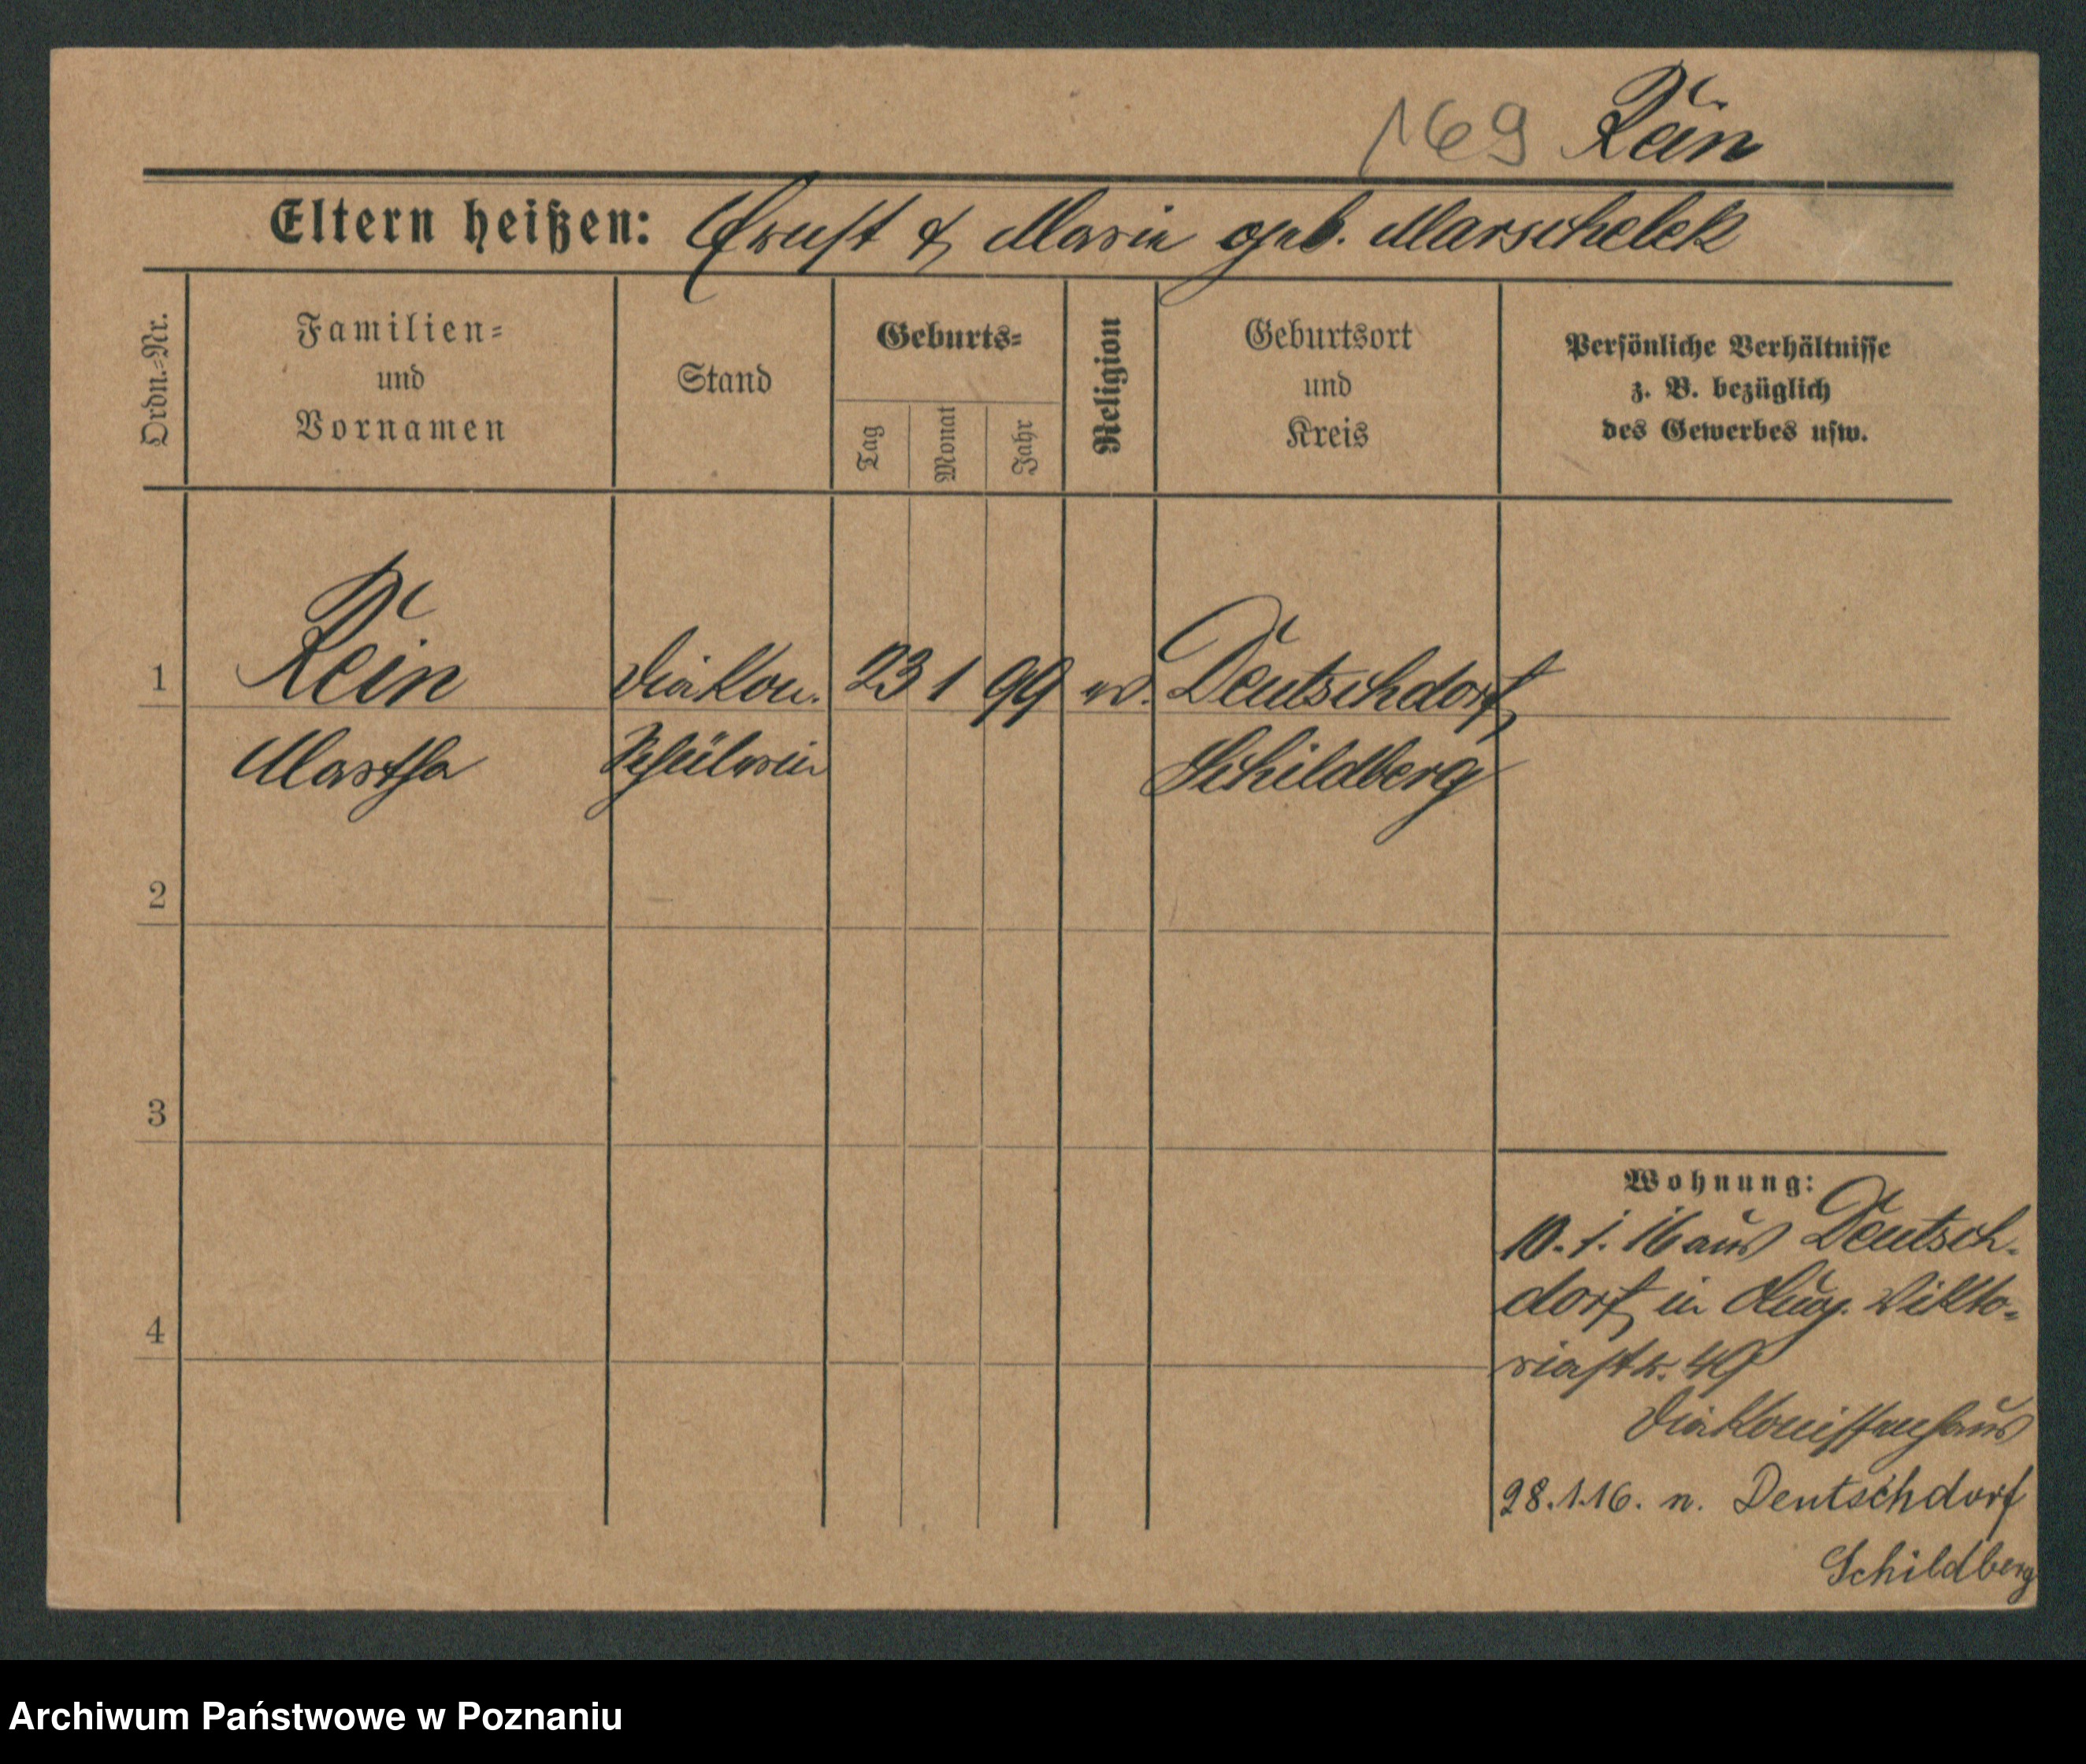 169 Rein
Eltern heißen: Ernst & Marie geb. Marschelek
Ordn.=Nr.
Familien=
und
Vornamen
Stand
Geburts=
Tag
Monat
Jahr
Religion
Geburtsort
und
Kreis
Persönliche Verhältnisse
z. B. bezüglich
des Gewerbes usw.
1 Rein Diakon. 23 1 99 ev. Deutschdorf
Martha Schülerin Schildberg
2
3
4
Wohnung:
10.1.16 aus Deutsch-
dorf in Aug. Vikto-
riastr. 49
Diakonissenhaus
28.1.16. n. Deutschdorf
Schildberg
Archiwum Państwowe w Poznaniu